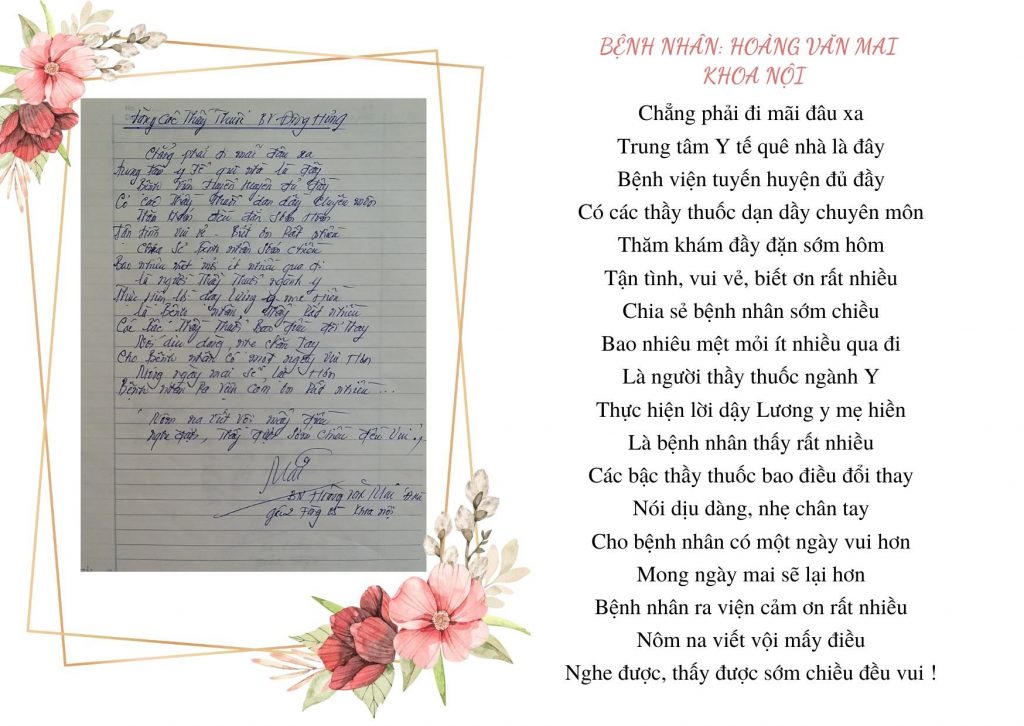 Tặng Các Thầy Thuốc BV Đông Hưng
Chẳng phải đi mãi đâu xa
Trung tâm y tế quê nhà là đây
Bệnh viện tuyến huyện đủ đầy
Có các thầy thuốc dạn dầy chuyên môn
Thăm khám đầy đặn sớm hôm
Tận tình vui vẻ. Biết ơn rất nhiều
Chia sẻ bệnh nhân sớm chiều
Bao nhiêu mệt mỏi ít nhiều qua đi
Là người thầy thuốc ngành y
Thực hiện lời dạy lương y mẹ hiền
Là bệnh nhân, thấy rất nhiều
Các bậc thầy thuốc bao điều đổi thay
Nói dịu dàng, nhẹ chân tay
Cho bệnh nhân có một ngày vui hơn
Mong ngày mai sẽ lại hơn
Bệnh nhân ra viện cảm ơn rất nhiều...
Nôm na viết vội mấy điều
Nghe được, thấy được sớm chiều đều vui.
Mai
BN Hoàng Văn Mai
khoa nội
BỆNH NHÂN: HOÀNG VĂN MAI
KHOA NỘI
Chẳng phải đi mãi đâu xa
Trung tâm Y tế quê nhà là đây
Bệnh viện tuyến huyện đủ đầy
Có các thầy thuốc dạn dầy chuyên môn
Thăm khám đầy đặn sớm hôm
Tận tình, vui vẻ, biết ơn rất nhiều
Chia sẻ bệnh nhân sớm chiều
Bao nhiêu mệt mỏi ít nhiều qua đi
Là người thầy thuốc ngành Y
Thực hiện lời dậy Lương y mẹ hiền
Là bệnh nhân thấy rất nhiều
Các bậc thầy thuốc bao điều đổi thay
Nói dịu dàng, nhẹ chân tay
Cho bệnh nhân có một ngày vui hơn
Mong ngày mai sẽ lại hơn
Bệnh nhân ra viện cảm ơn rất nhiều
Nôm na viết vội mấy điều
Nghe được, thấy được sớm chiều đều vui !